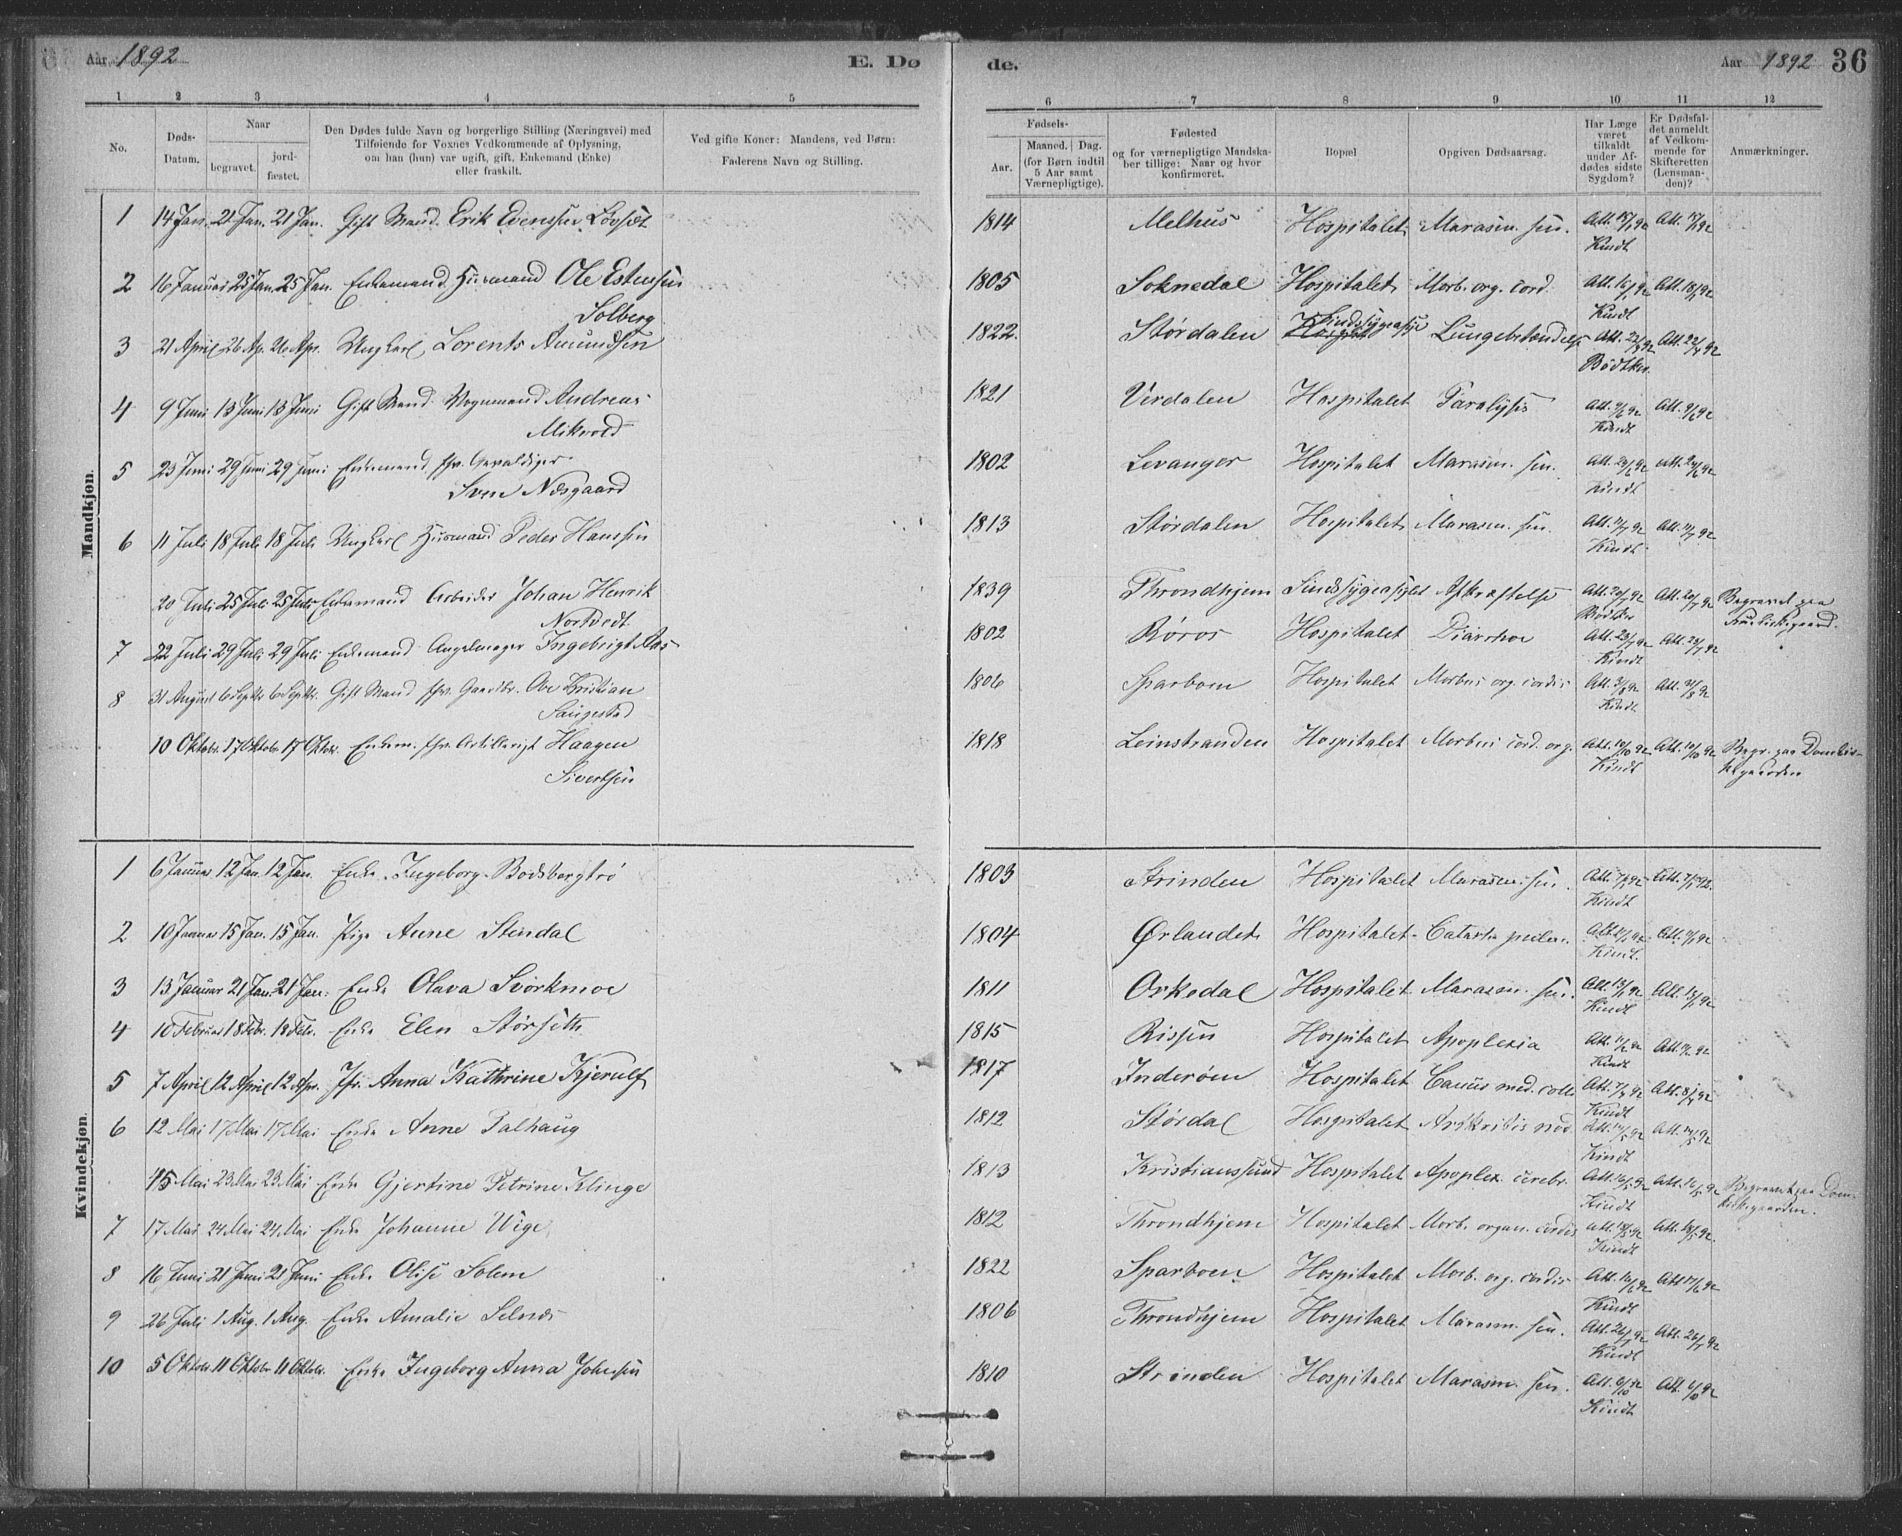 Aar 1892 E. Dø de. Aar 1892 36
1 2 3 4 5 6 7 8 9 10 11 12
No.
Døds-
Datum.
Naar
begravet.
jord-
fæstet.
Den Dødes fulde Navn og borgerlige Stilling (Næringsvei) med
Tilføiende for Voxnes Vedkommende af Oplysning,
om han (hun) var ugift, gift, Enkemand (Enke)
eller fraskilt.
Ved gifte Koner: Mandens, ved Børn:
Faderens Navn og Stilling.
Fødsels-
Aar.
Maaned. Dag.
(for Børn indtil
5 Aar samt
Værnepligtige).
Fødested
og for værnepligtige Mandska-
ber tillige: Naar og hvor
konfirmeret.
Bopæl
Opgiven Dødsaarsag.
Har Læge
været
tilkaldt
under Af-
dødes sidste
Sygdom?
Er Dødsfal-
det anmeldt
af Vedkom-
mende for
Skifteretten
(Lensman-
den)?
Anmærkninger.
Mandkjøn.
1 14 Jan. 21 Jan. 21 Jan. Gift Mand. Erik Evensen Løvset 1814 Melhus Hospitalet Marasm. sen. Att.
Kindt
2 16 Januar 25 Jan. 25 Jan. Enkemand Husmand Ole Estensen 1805 Soknedal Hospitalet Morb. org. cord. Att. 16/1 92 Att. 18/1 92
Solberg Kindt
3 21 April 26 Ap. 26 Apr. Ungkarl Lorents Amundsen 1822. Størdalen Sindssygeasyl Lungebetændelse Att. 22/4 92 Att. 22/4 92
Bødtker
4 9 Juni 13 Juni 13 Juni Gift Mand Vognmand Andreas 1821 Verdalen Hospitalet Paralysis Att. 9/6 92 Att. 9/6 92
Mikvold Kindt
5 23 Juni 29 Juni 29 Juni Enkemand fhv. Gevaldiger 1802 Levanger Hospitalet Marasm. sen. Att. 24/6 92 Att. 24/6 92
Sven Næsgaard Kindt
6 11 Juli 18 Juli 18 Juli Ungkarl Husmand Peder Hansen 1813 Størdalen Hospitalet Marasm. sen. Att. 11/7 92 Att. 11/7 92
Kindt
20 Juli 25 Juli 25 Juli Enkemand Arbeider Johan Henrik 1839 Throndhjem Sindssygeasylet Afkræftelse Att. 20/7 92 Att. 20/7 92 Begravet paa
Nortvedt Bødtker
7 22 Juli 29 Juli 29 Juli Enkemand Angelmager Ingebrigt Aas 1802 Røros Hospitalet Diarrhoe Att. 23/7 92 Att. 23/7 92
Kindt
8 31 August 6 Septbr. 6 Septbr. Gift Mand fhv. Gaardbr. Ove Kristian 1806 Sparboen Hospitalet Morbus org. cordis Att. 31/8 92 Att. 31/8 92
Saugestad Kindt
10 Oktobr. 17 Oktobr. 17 Oktbr. Enkem. fhv. Artillerist Haagen 1818 Leinstranden Hospitalet Morbus cord. org. Att. 10/10 92 Att. 10/10 92 Begr. paa Domkir-
Sivertsen Kindt kegaarden
Kvindekjøn.
1 6 Januar 12 Jan. 12 Jan. Enke Ingeborg Bodsbergtrø 1803 Strinden Hospitalet Marasm. sen. Att. 7/1 92 Att. 7/1 92.
Kindt
2 10 Januar 15 Jan. 15 Jan. Pige Anne Stendal 1804 Ørlandet Hospitalet Att. 11/1 92 Att. 11/1 92
Kindt.
3 13 Januar 21 Jan. 21 Jan. Enke Olava Svorkmoe 1811 Orkedal Hospitalet Marasm. sen. Att. 13/1 92 Att. 13/1 92
Kindt
4 10 Februar 18 Febr. 18 Febr. Enke Elen Størseth 1815 Rissen Hospitalet Apoplexia Att. 11/2 92 Att. 11/2 92
Kindt
5 7 April 12 April 12 Apr. Jfr. Anna Kathrine Kjerulf 1817 Inderøen Hospitalet Att. 7/4 92 Att. 8/4 92
Kindt
6 12 Mai 17 Mai 17 Mai Enke Anne Palhaug 1812 Størdal Hospitalet Att. 14/5 92 Att. 14/5 92
Kindt
15 Mai 23 Mai 23 Mai Enke Gjertine Petrine Klinge 1813 Kristianssund Hospitalet Apoplex. cerebr. Att. 16/5 92 Att. 16/5 92 Begravet paa Dom-
Kindt kirkegaarden.
7 17 Mai 24 Mai 24 Mai Enke Johanne Wige 1812 Throndhjem Hospitalet Morb. organ. cordis Att. 18/5 92 Att. 18/5 92.
Kindt
8 16 Juni 21 Juni 21 Juni Enke Olise Solem 1822 Sparboen Hospitalet Morb. org. cordis Att. 16/6 92 Att. 17/6 92
Kindt
9 26 Juli 1 Aug. 1 Aug. Enke Amalie Selnæs 1806 Throndhjem Hospitalet Marasm. sen. Att. 26/7 92 Att. 26/7 92
Kindt
10 5 Oktbr. 11 Oktobr. 11 Oktobr. Enke Ingeborg Anna Johnsen 1810 Strinden Hospitalet Marasm. sen. Att. 6/10 92 Att. 6/10 92
Kindt